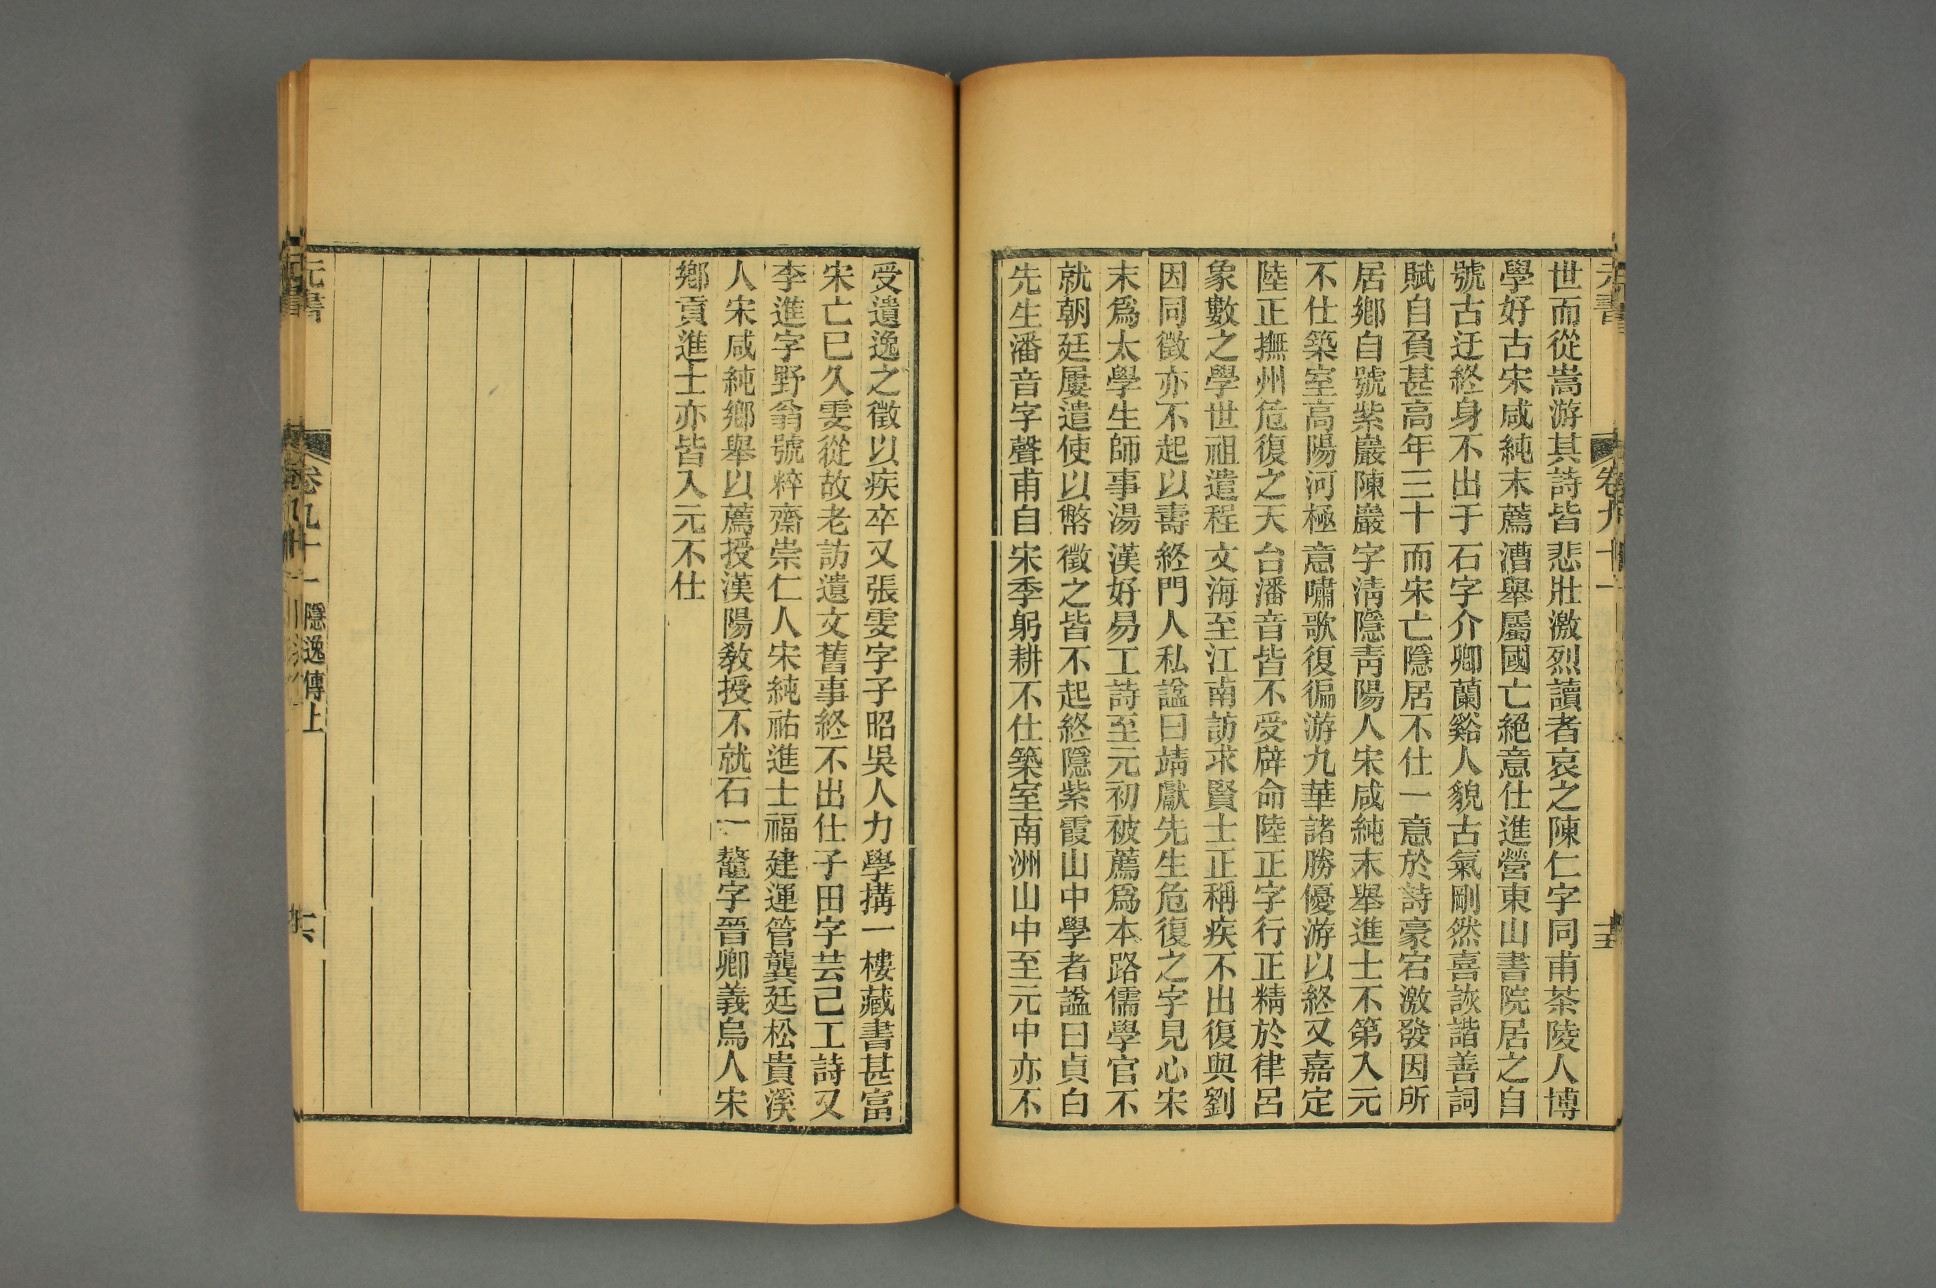 世而從嵩游其詩皆悲壯激烈讀者哀之陳仁字同甫茶陵人博
學好古宋咸純末薦漕舉屬國亡絕意仕進營東山書院居之自
號古迂終身不出于石字介卿蘭谿人貌古氣剛然喜詼諧善詞
賦自負甚高年三十而宋亡隱居不仕一意於詩豪宕激發因所
居鄉自號紫巖陳巖字淸隱靑陽人宋咸純末舉進士不第入元
不仕築室高陽河極意嘯歌復徧游九華諸勝優游以終又嘉定
陸正撫州危復之天台潘音皆不受辟命陸正字行正精於律呂
象數之學世祖遣程文海至江南訪求賢士正稱疾不出復與劉
因同徵亦不起以壽終門人私諡曰靖獻先生危復之字見心宋
末爲太學生師事湯漢好易工詩至元初被薦爲本路儒學官不
就朝廷屢遣使以幣徵之皆不起終隱紫霞山中學者諡曰貞白
先生潘音字聲甫自宋季躬耕不仕築室南洲山中至元中亦不
元書
卷九十一
十五
受遺逸之徵以疾卒又張雯字子昭吳人力學搆一樓藏書甚富
宋亡已久雯從故老訪遺文舊事終不出仕子田字芸己工詩又
李進字野翁號粹齋崇仁人宋純祐進士福建運管龔廷松貴溪
人宋咸純鄉舉以薦授漢陽敎授不就石一鼇字晉卿義烏人宋
鄉貢進士亦皆入元不仕
元書
卷九十一 隱逸傳上